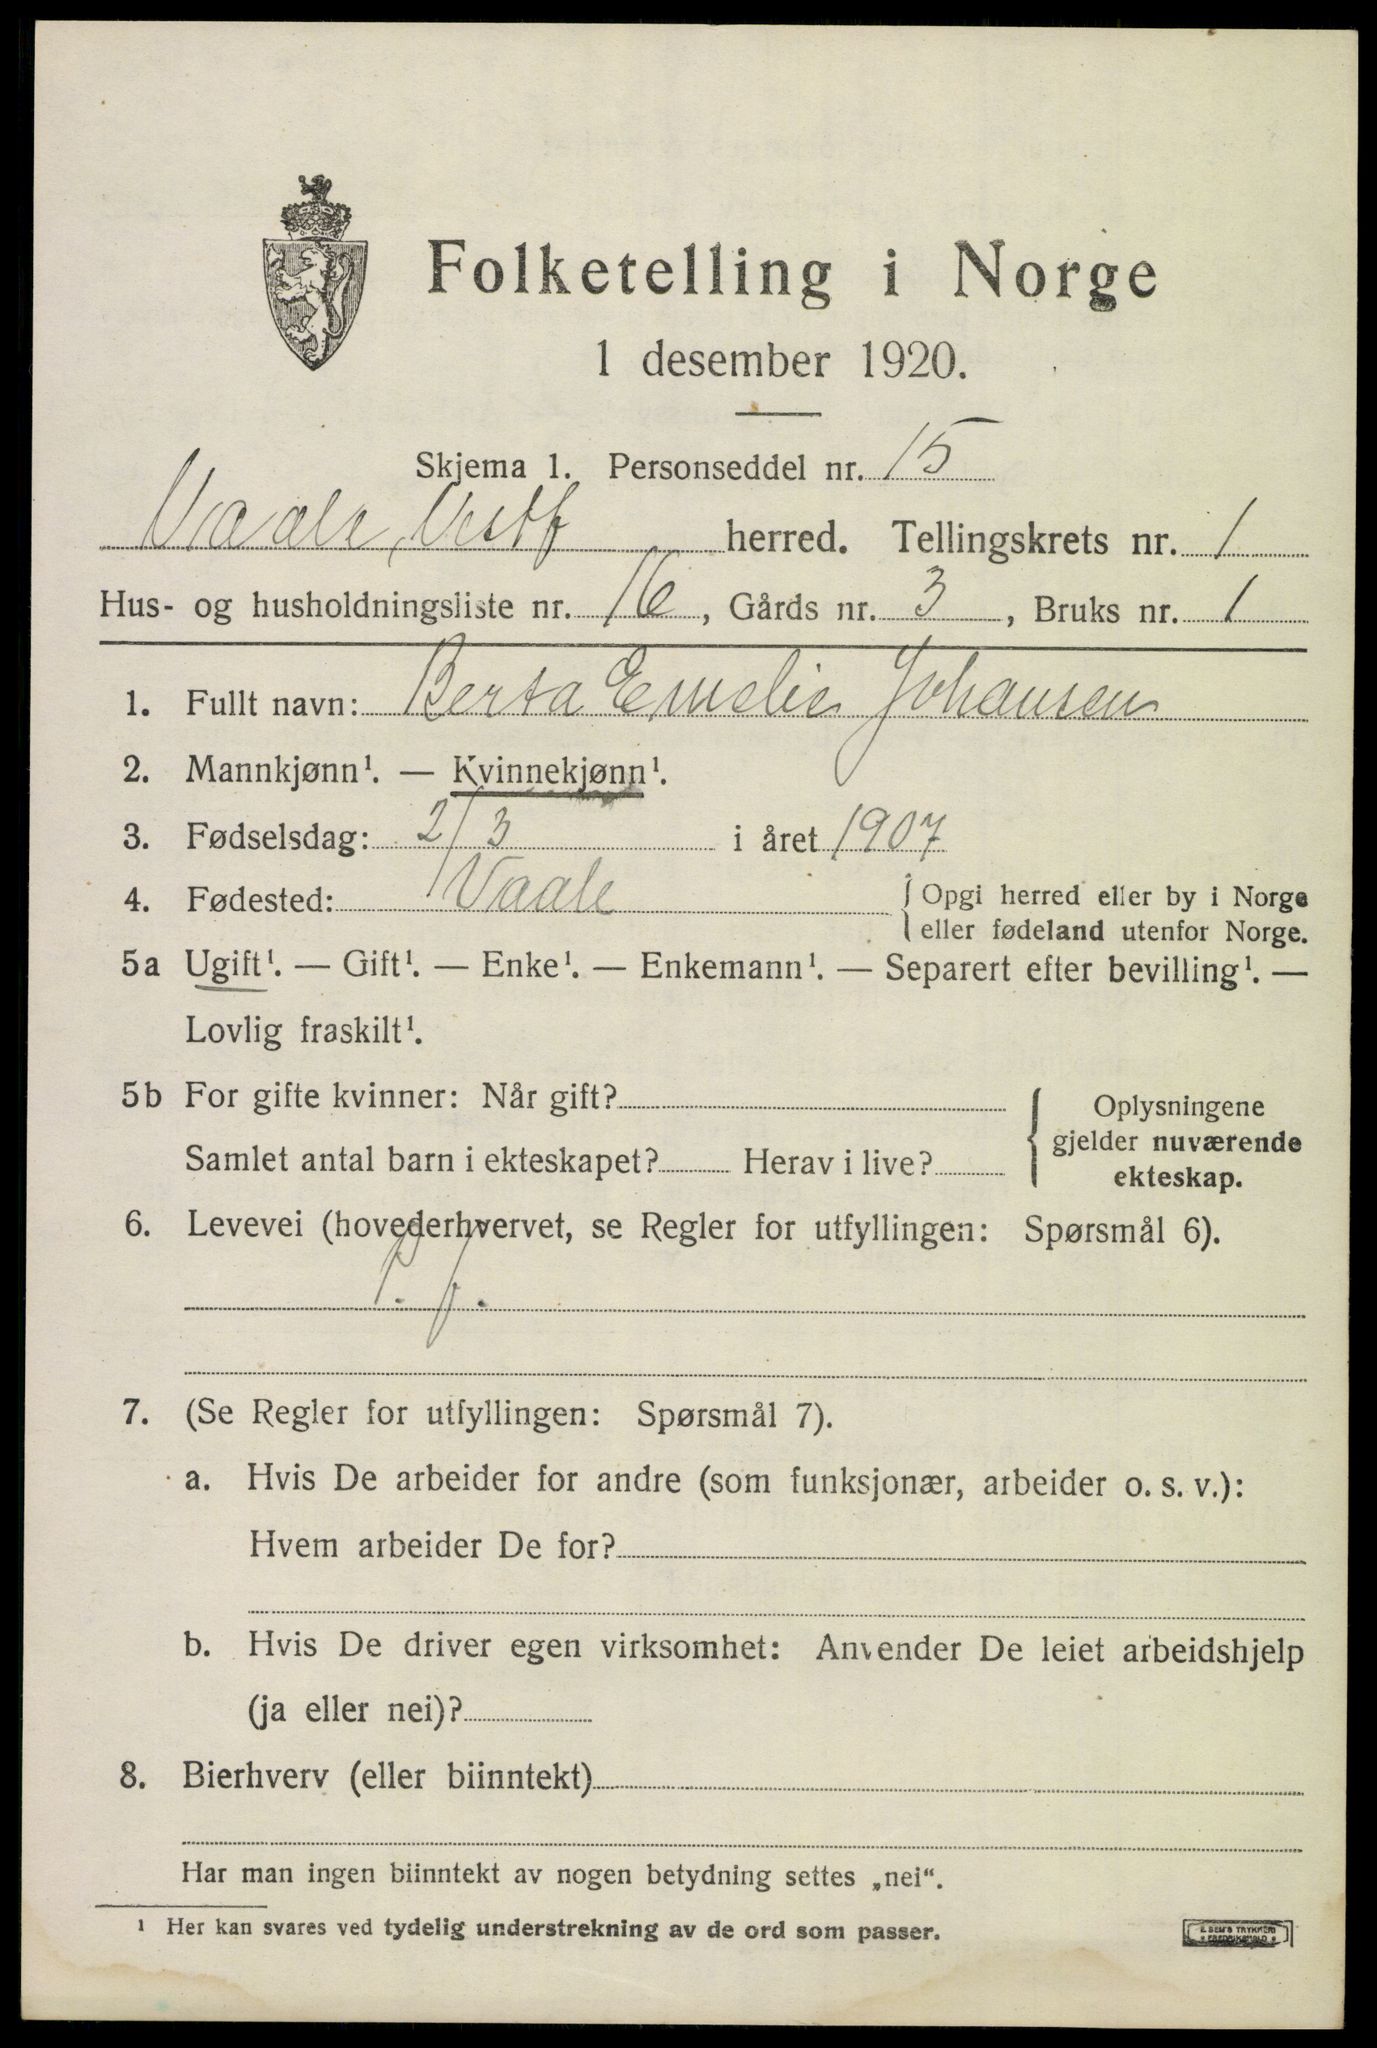 Folketelling i Norge
1 desember 1920.
Skjema 1. Personseddel nr. 15
Vaale, Vestf herred. Tellingskrets nr. 1
Hus- og husholdningsliste nr. 16, Gårds nr. 3, Bruks nr. 1
1. Fullt navn: Berta Emelie Johansen
2. Mannkjønn¹. — Kvinnekjønn¹.
3. Fødselsdag: 2/3 i året 1907
4. Fødested: Vaale { Opgi herred eller by i Norge
eller fødeland utenfor Norge.
5a Ugift¹. — Gift¹. — Enke¹. — Enkemann¹. — Separert efter bevilling¹. —
Lovlig fraskilt¹.
5b For gifte kvinner: Når gift?
Samlet antal barn i ekteskapet? Herav i live?
Oplysningene
gjelder nuværende
ekteskap.
6. Levevei (hovederhvervet, se Regler for utfyllingen: Spørsmål 6).
P. f.
7. (Se Regler for utfyllingen: Spørsmål 7).
a. Hvis De arbeider for andre (som funksjonær, arbeider o. s. v.):
Hvem arbeider De for?
b. Hvis De driver egen virksomhet: Anvender De leiet arbeidshjelp
(ja eller nei)?
8. Bierhverv (eller biinntekt)
Har man ingen biinntekt av nogen betydning settes „nei“.
¹ Her kan svares ved tydelig understrekning av de ord som passer.
E. SEM'S TRYKKERI
FREDRIKSHALD